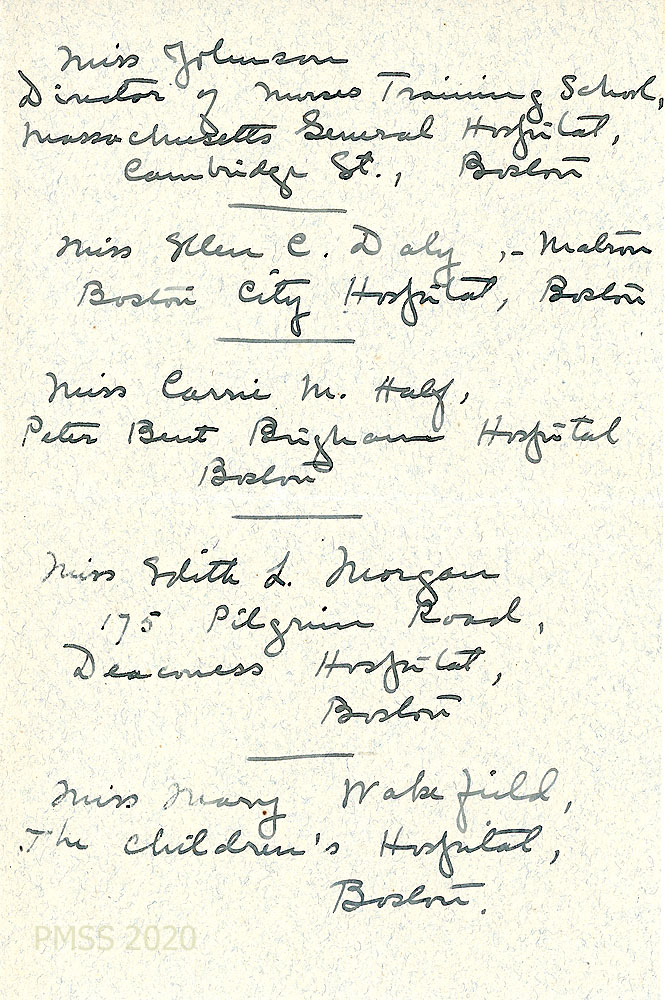 Miss Johnson
Director of Nurses Training School,
Massachusetts General Hospital,
Cambridge St., Boston
Miss Ellen C. Daly, - Matron
Boston City Hospital, Boston
Miss Carrie M. Hall,
Peter Bent Brigham Hospital
Boston
Miss Edith L. Morgan
175 Pilgrim Road,
Deaconess Hospital,
Boston
Miss Mary Wakefield,
The Children's Hospital,
Boston.
PMSS 2020